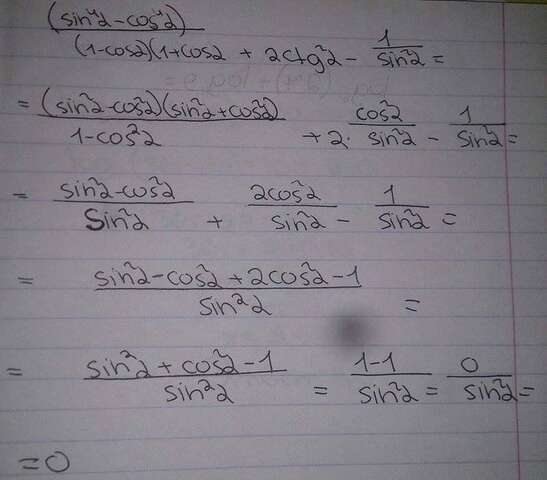 (sin⁴2-cos⁴2)/(1-cos2)(1+cos2 + 2ctg²2 - 1/sin²2 =
= (sin²2-cos²2)(sin²2+cos²2)/1-cos²2 + 2· cos²2/sin²2 - 1/sin²2 =
= sin²2-cos²2/sin²2 + 2cos²2/sin²2 - 1/sin²2 =
= sin²2-cos²2+2cos²2-1/sin²2 =
= sin²2+cos²2-1/sin²2 = 1-1/sin²2 = 0/sin²2 =
=0